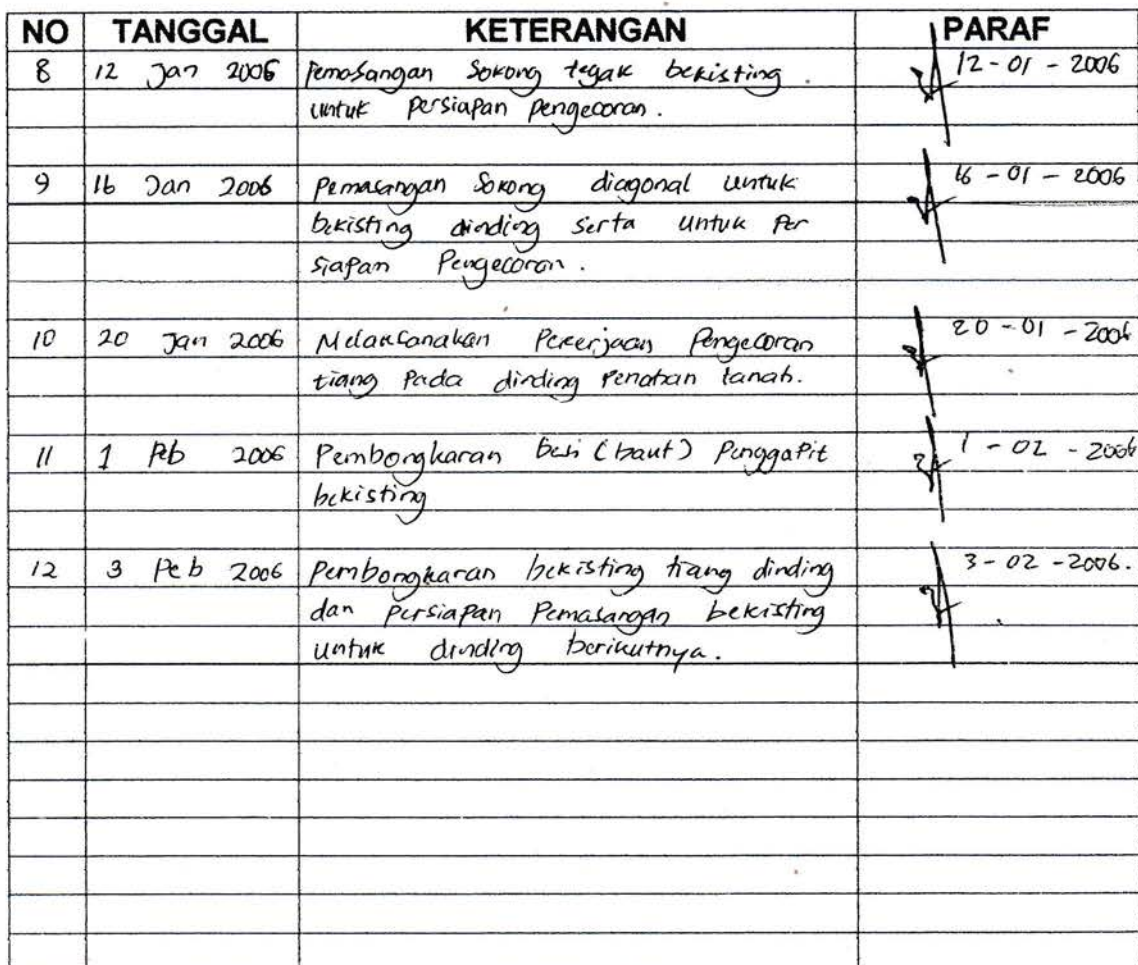 NO TANGGAL KETERANGAN PARAF
8 12 Jan 2006 Pemasangan Sokong tegak bekisting 12-01-2006
untuk persiapan pengecoran.
9 16 Jan 2006 Pemasangan Sokong diagonal untuk 16-01-2006
bekisting dinding serta untuk Per
siapan Pengecoran.
10 20 Jan 2006 Melaksanakan Pekerjaan Pengecoran 20-01-2006
tiang Pada dinding Penahan tanah.
11 1 Peb 2006 Pembongkaran besi (baut) Penggapit 1-02-2006
bekisting
12 3 Peb 2006 Pembongkaran bekisting tiang dinding 3-02-2006.
dan Persiapan Pemasangan bekisting
untuk dinding berikutnya.